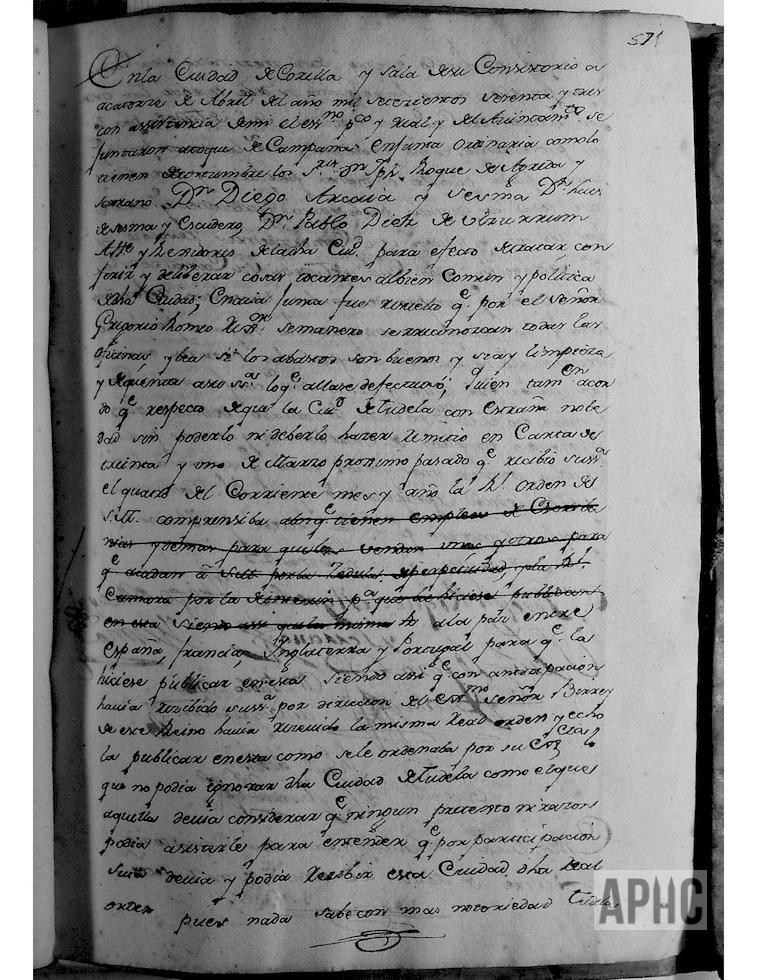 571
En la Ciudad de Corella y sala de su Consistorio a
catorze de Abril del año mil setecientos setenta y tres
con assistencia de mi el ess.no p.co y Real y del Aiuntam.to se
juntaron a toque de Campana en junta ordinaria como lo
tienen de costumbre los S.res Dn Jph. Roque de Agreda y
serrano Dn. Diego Arcaia y Sesma Dn. Luis
de sesma y Escudero, Dn. Pablo Diez de Ulzurrum
Alle y Regidores de la dha Ciu.d para efecto de tratar, con
ferir, y deliberar cosas tocantes al bien Comun y politica
de dha Ciudad; En cuia junta fue resuelto q.e por el señor
Grigorio Romeo Rex.or semanero se reconozcan todas las
oficinas, y bea si los abastos son buenos y si ay limpieza
y de quenta a sus ss.as lo q.e allare defectuoso; Quien tam.en acor
do q.e respecto de que la Ciu.d de Tudela con estraña nobe
dad sin poderlo ni deberlo hazer remitio en Carta de
treinta y uno de Marzo proximo pasado q.e recibio su ss.a
el quatro del Corriente mes y año la Rl. orden de
S.M. comprensiba a los q.e tienen empleos de Escriba
nias y demas para que los vendan unos y otros para
q.e acudan a S.M. por la Zedula de perpetuidad, y la Rl.
Camara por la p.a que la hiciese publicar
en esta siendo assi que la misma to a la paz entre
España, francia, Inglaterra y Portugal para q.e la
hiciese publicar en esta siendo assi q.e con anticipacion
havia recibido su ss.a por direccion del Ex.mo señor Birrey
de este Reino havia recevido la misma Real orden y echo
la publicar en esta como se le ordenaba por su Ex.cia lo
que no podia ignorar dha Ciudad de Tudela como el que
aquella devia considerar q.e ningun pretexto ni razon
podia asistirle para entender q.e por participacion
suia devia y podia rezebir esta Ciudad dha Real
orden pues nada sabe con mas notoriedad Tudela
APHC